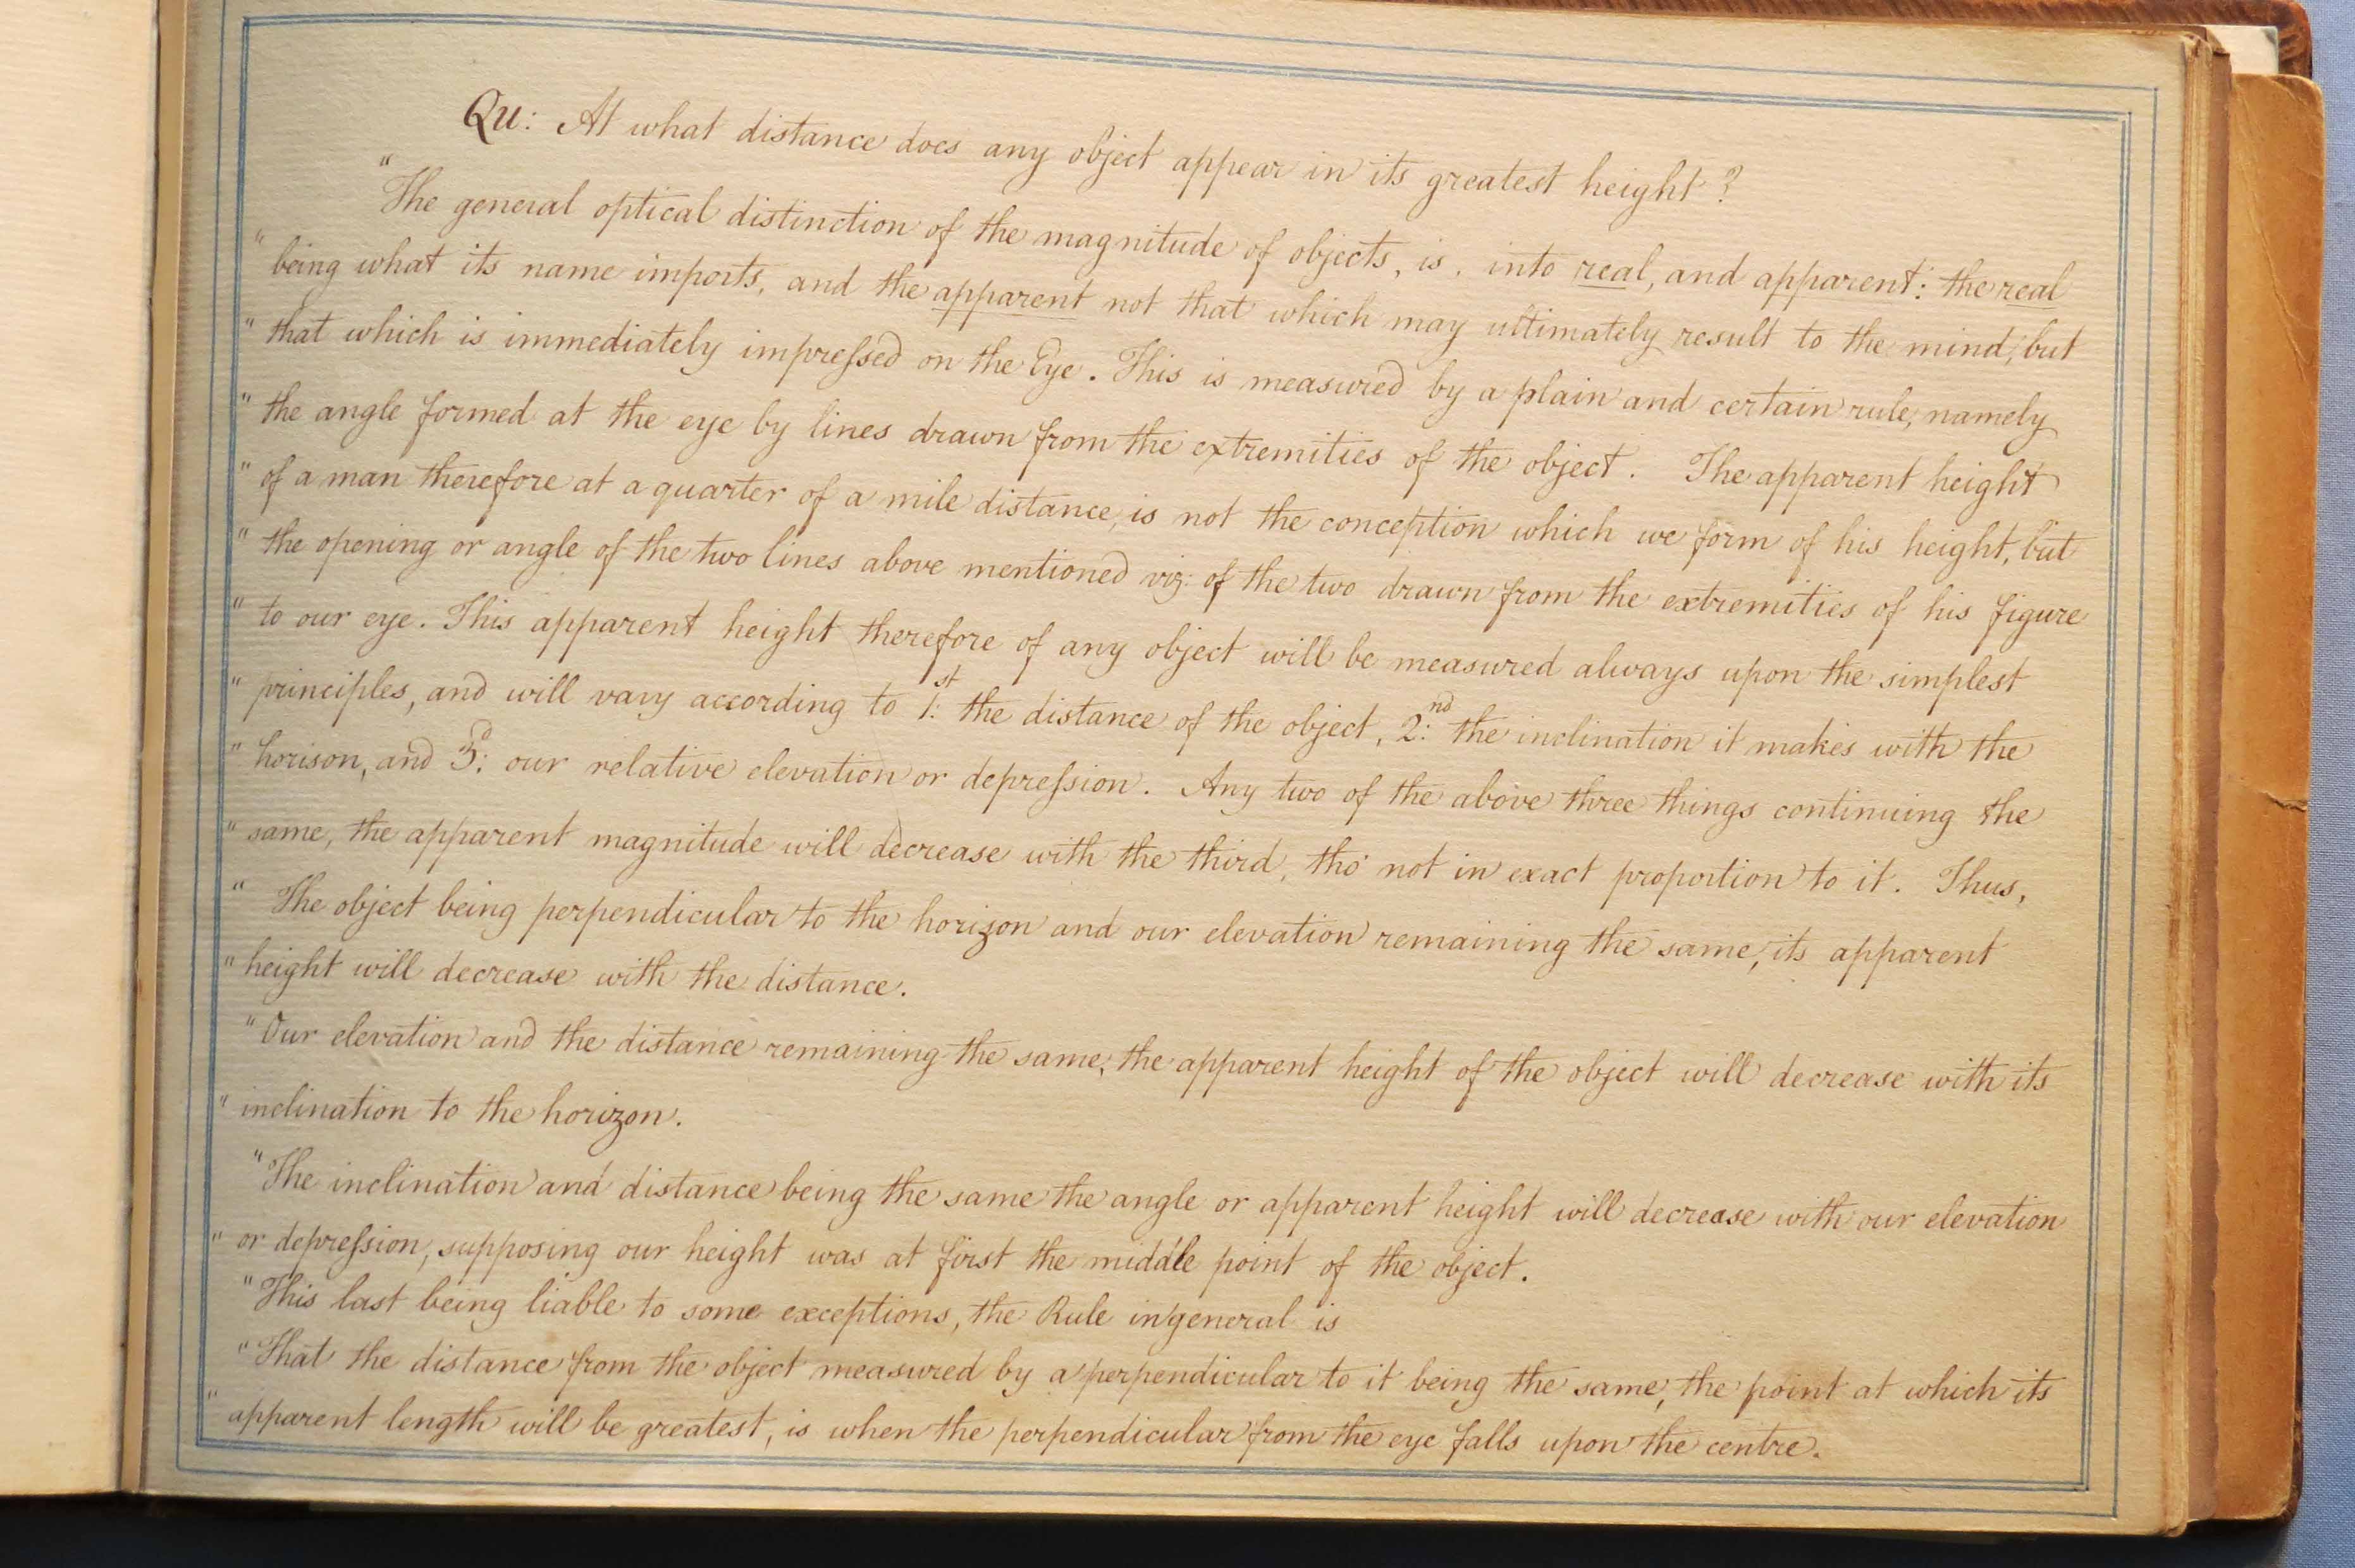 Qu: At what distance does any object appear in its greatest height?
"The general optical distinction of the magnitude of objects, is, into real, and apparent: the real
"being what its name imports, and the apparent not that which may ultimately result to the mind, but
"that which is immediately impreſsed on the Eye. This is measured by a plain and certain rule, namely
"the angle formed at the eye by lines drawn from the extremities of the object. The apparent height
"of a man therefore at a quarter of a mile distance, is not the conception which we form of his height, but
"the opening or angle of the two lines above mentioned viz: of the two drawn from the extremities of his figure
"to our eye. This apparent height therefore of any object will be measured always upon the simplest
"principles, and will vary according to 1:st the distance of the object, 2:nd the inclination it makes with the
"horison, and 3:d our relative elevation or depreſsion. Any two of the above three things continuing the
"same, the apparent magnitude will decrease with the third, tho' not in exact proportion to it. Thus,
"The object being perpendicular to the horizon and our elevation remaining the same, its apparent
"height will decrease with the distance.
"Our elevation and the distance remaining the same, the apparent height of the object will decrease with its
"inclination to the horizon.
"The inclination and distance being the same the angle or apparent height will decrease with our elevation
"or depreſsion, supposing our height was at first the middle point of the object.
"This last being liable to some exceptions, the Rule in general is
"That the distance from the object measured by a perpendicular to it being the same, the point at which its
"apparent length will be greatest, is when the perpendicular from the eye falls upon the centre.